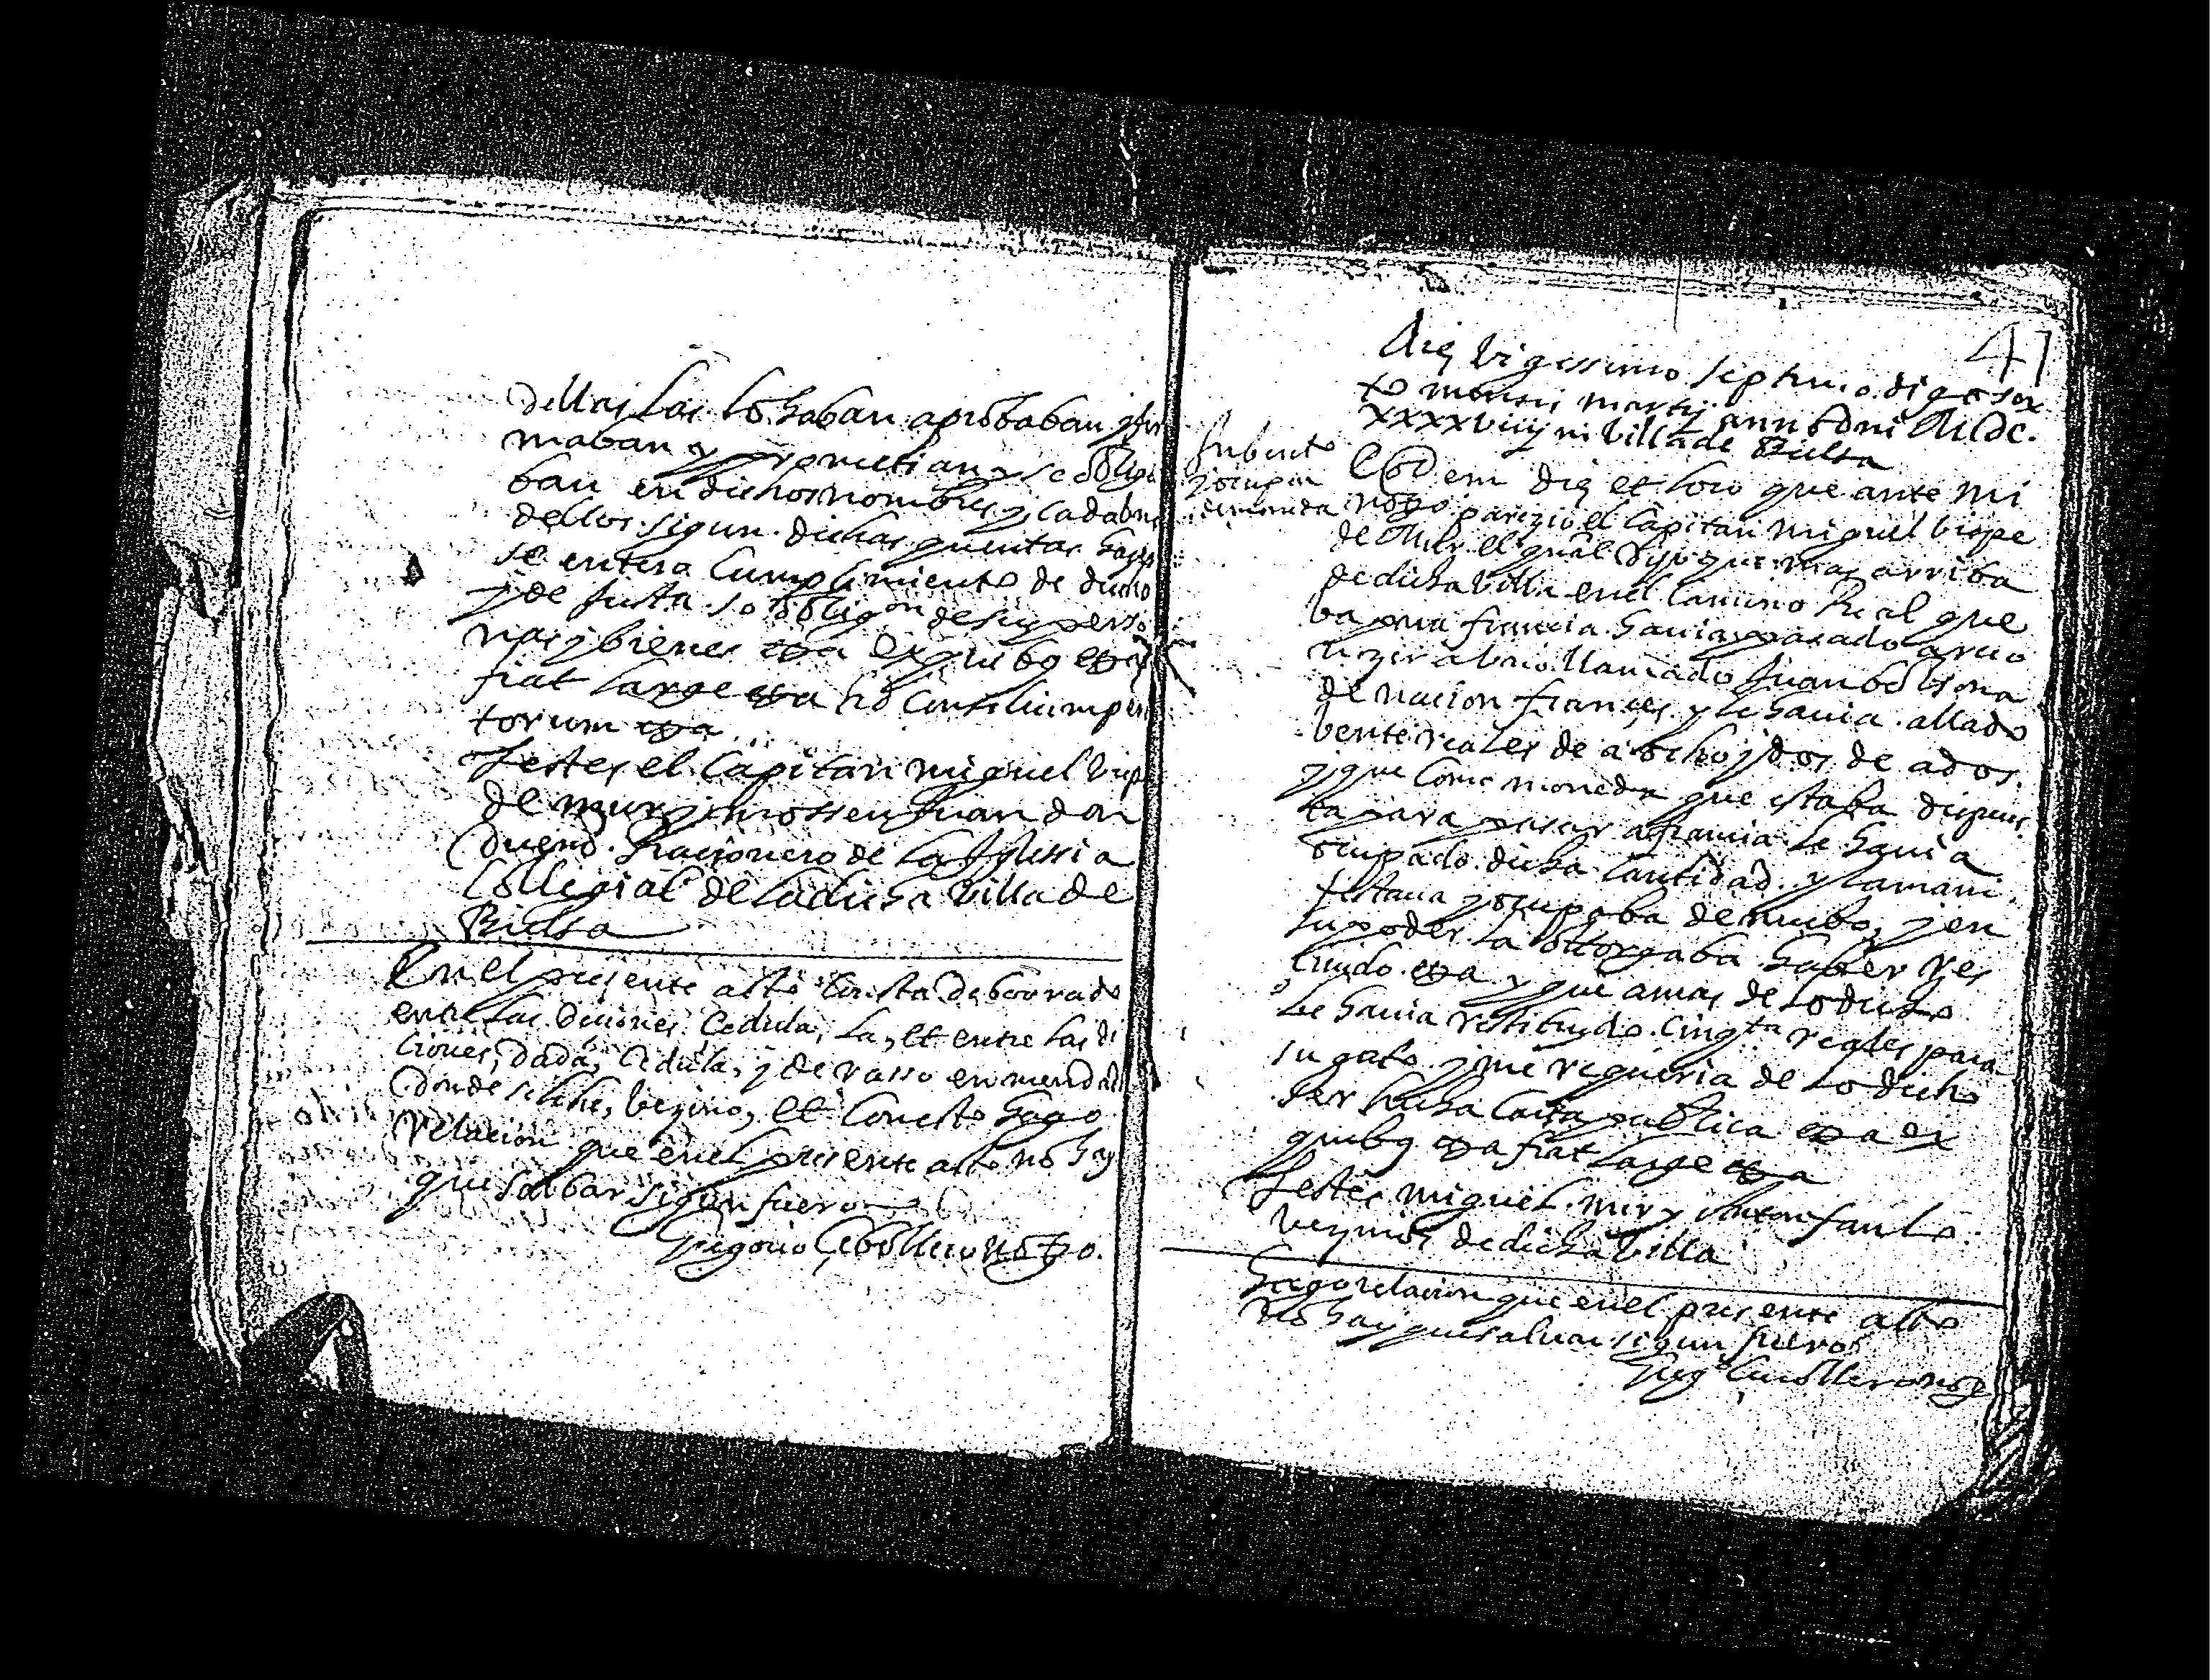 dellas las lohaban aprobaban y fir
maban y prometian y se obliga
ban en dichos nombres y cada uno
dellos sigun dichas quentas hasta
se entero cumplimiento de dicho
y de justa so obligon de sus perso
nas y bienes exa ex quibq exa
fiat large exa ad consilium peri
torum exa
Testes el Capitan miguel bispe
de mur y mossen Juan don
Duerto Racionero de la Iglessia
Collegial de la dicha villa de
Bielsa
En el presente acto consta de borrado
entre las diciones, Cedula, la, et entre las di
ciones, dada, Cedula, y de rasso enmendado
donde se lehe, bezino, et con esto hago
relacion que en el presente acto no hay
que salbar sigun fuero
Gregorio Cebollero noto
41
Die bigessimo septimo
mensis martij anno Dni MDC
XXXXVIIIJ in villa de Bielsa
Imbento
y ocupon
de moneda
Eodem die et loco que ante mi
noto parezio el Capitan miguel bispe
de Mur el qual dijo que mas arriba
de dicha villa en el camino Real que
ba para francia havia pasado a reco
nozer a uno llamado Juan
de nacion frances y le havia allado
bente reales de a ocho y dos de a dos
y que como moneda que estaba dispues
ta para pasar a francia le havia
ocupado dicha cantidad y la mani
festaua y ocupaba de nuebo, y en
su poder la ottorgaba haber res
ciuido exa y que amas de lo dicho
le havia restituydo cinqta reales para
su gasto y me requeria de lo dicho
ser hecha carta publica exa ex
quibq exa fiat large exa
Testes miguel mir y Anton fanlo
vezinos de dicha villa
Hago relacion que en el presente acto
no hay que saluar sigun fuero
Grego Ceuollero noto